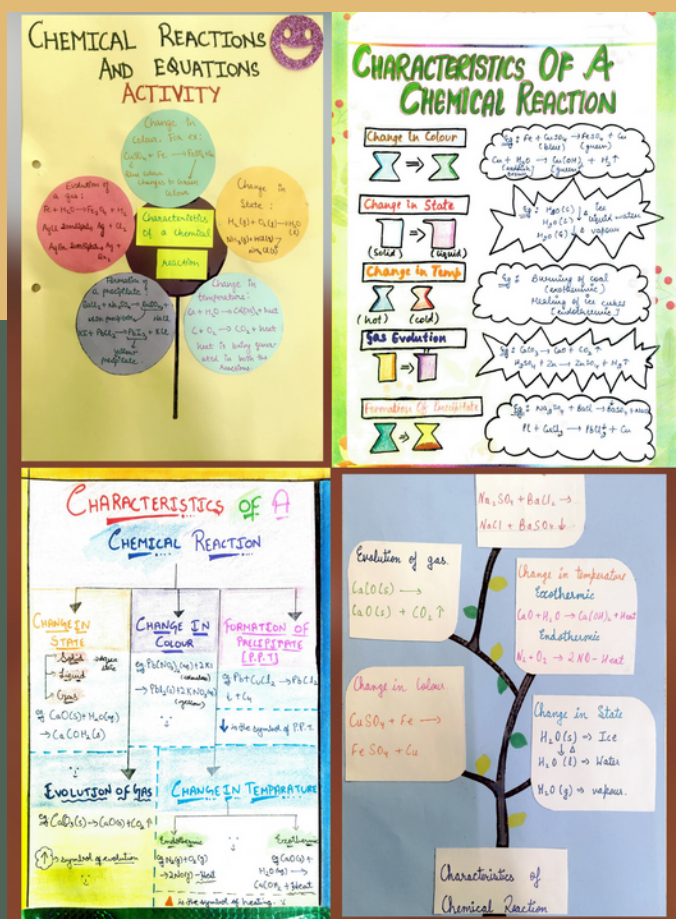 CHEMICAL REACTIONS
AND EQUATIONS
ACTIVITY
Change in
Colour. For ex:
CuSO₄ + Fe → FeSO₄ + Cu
changes to
colour
Evolution of
a gas:
Fe + H₂O → Fe₃O₄ + H₂
AgCl Sunlight Ag + Cl₂
AgBr Sunlight Ag +
Br₂
Change in
State:
H₂(g) + O₂(g) → H₂O
(l)
NH₃(g) + HCl(g) →
NH₄Cl(s)
Characteristics
of a chemical
reaction
Formation of
a precipitate:
BaCl₂ + Na₂SO₄ → BaSO₄ +
white precipitate NaCl
KI + PbCl₂ → PbI₂ + KCl
yellow
precipitate
Change in
temperature:
Ca + H₂O → Ca(OH)₂ + heat
C + O₂ → CO₂ + heat
heat is being gener
ated in both the
reactions.
CHARACTERISTICS OF A
CHEMICAL REACTION
Change In Colour
Eg: Fe + CuSO₄ → FeSO₄ + Cu
(blue) (green)
Cu + H₂O → Cu(OH)₂ + H₂↑
(green)
Change in State
(solid) (liquid)
Eg: H₂O(s) ice
H₂O(l) liquid water
H₂O(g) vapour
Change in Temp
(hot) (cold)
Eg: Burning of coal
(exothermic)
Heating of ice cubes
(endothermic)
Gas Evolution
Eg: CaCO₃ → CaO + CO₂↑
H₂SO₄ + Zn → ZnSO₄ + H₂↑
Formation Of Precipitate
Eg: Na₂SO₄ + BaCl → BaSO₄ +
+ CuCl₂ → PbCl₂ + Cu
CHARACTERISTICS OF A
CHEMICAL REACTION
CHANGE IN
STATE
Solid
Liquid
Gas
eg CaO(s) + H₂O(aq)
→ Ca(OH)₂(l)
CHANGE IN
COLOUR
eg Pb(NO₃)₂(aq) + 2KI
(colourless)
→ PbI₂(s) + 2KNO₃(aq)
(yellow)
FORMATION OF
PRECIPITATE
[P.P.T]
eg Pb + CuCl₂ → PbCl₂
↓ + Cu
↓ is the symbol of P.P.T.
EVOLUTION OF GAS
eg CaCO₃(s) → CaO(s) + CO₂↑
↑ → symbol of evolution
CHANGE IN TEMPARATURE
Endothermic
eg N₂(g) + O₂(g)
→ 2NO(g) - Heat
Exothermic
eg CaO(s) +
H₂O(g) →
Ca(OH)₂ + Heat
is the symbol of heating.
Na₂SO₄ + BaCl₂ →
NaCl + BaSO₄ ↓
Evolution of gas.
CaO(s) →
CaO(s) + CO₂ ↑
Change in temperature
Exothermic
CaO + H₂O → Ca(OH)₂ + Heat
Endothermic
N₂ + O₂ → 2NO - Heat
Change in Colour
CuSO₄ + Fe →
FeSO₄ + Cu
Change in State
H₂O(s) ⇒ Ice
H₂O(l) ⇒ Water
H₂O(g) ⇒ vapour.
Characteristics of
Chemical Reaction